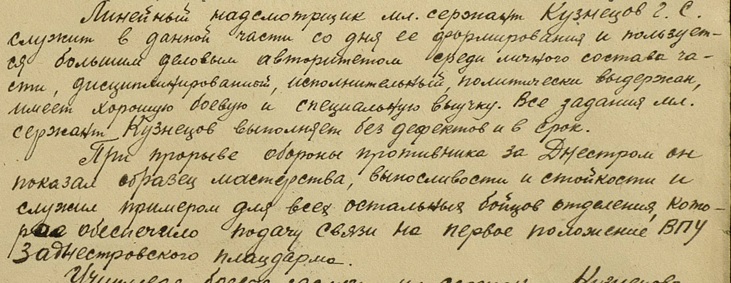 Линейный надсмотрщик мл. сержант Кузнецов Г. С.
служит в данной части со дня ее формирования и пользует-
ся большим деловым авторитетом среди личного состава ча-
сти, дисциплинированный, исполнительный, политически выдержан,
имеет хорошую боевую и специальную выучку. Все задания мл.
сержант Кузнецов выполняет без дефектов и в срок.
При прорыве обороны противника за Днестром он
показал образец мастерства, выносливости и стойкости и
служил примером для всех остальных бойцов отделения, кото-
рое обеспечило подачу связи на первое положение ВПУ
Заднестровского плацдарма.
Кузнецова